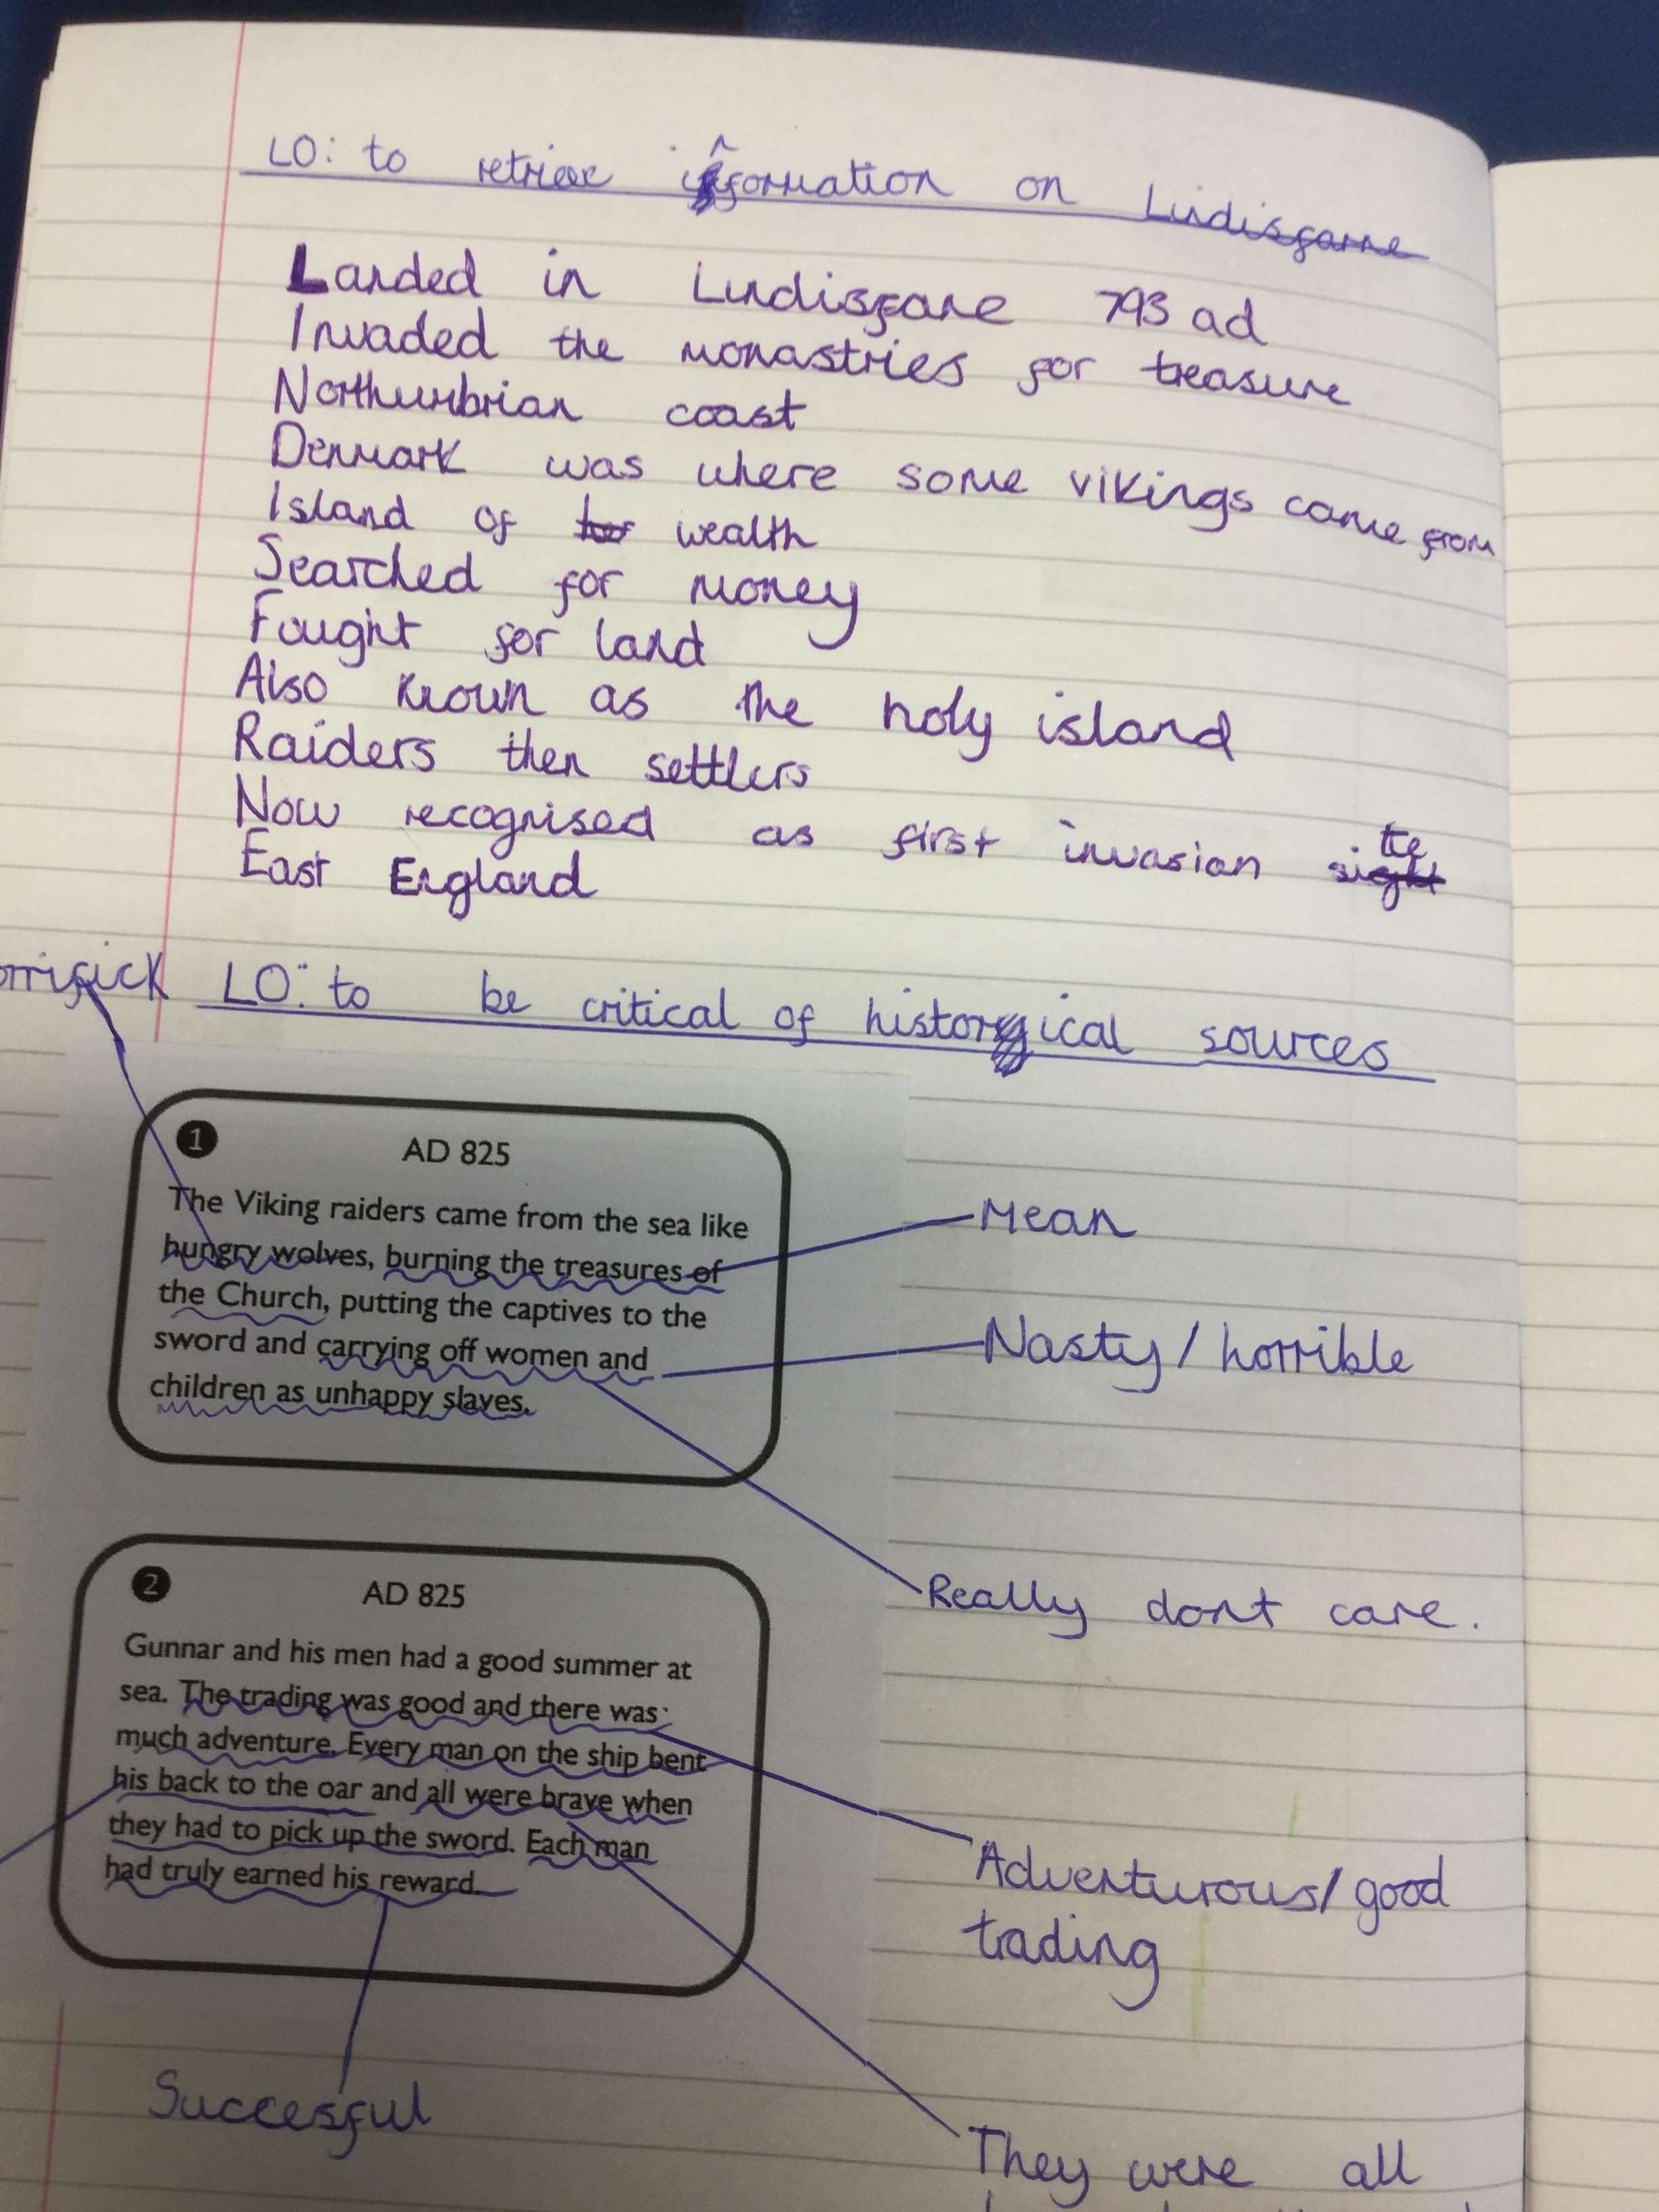 LO: to retrieve information on Lindisfarne
Landed in Lindisfane 793 ad
Invaded the monastries for treasure
Northumbrian coast
Denmark was where some vikings came from
Island of wealth
Searched for money
Fought for land
Also known as the holy island
Raiders then settlers
Now recognised as first invasion site
East England
orrifick
LO: to be critical of historical sources
1
AD 825
The Viking raiders came from the sea like
hungry wolves, burning the treasures of
the Church, putting the captives to the
sword and carrying off women and
children as unhappy slaves.
Mean
Nasty / horrible
Really dont care.
2
AD 825
Gunnar and his men had a good summer at
sea. The trading was good and there was
much adventure. Every man on the ship bent
his back to the oar and all were brave when
they had to pick up the sword. Each man
had truly earned his reward.
Adventurous / good
trading
Succesful
They were all